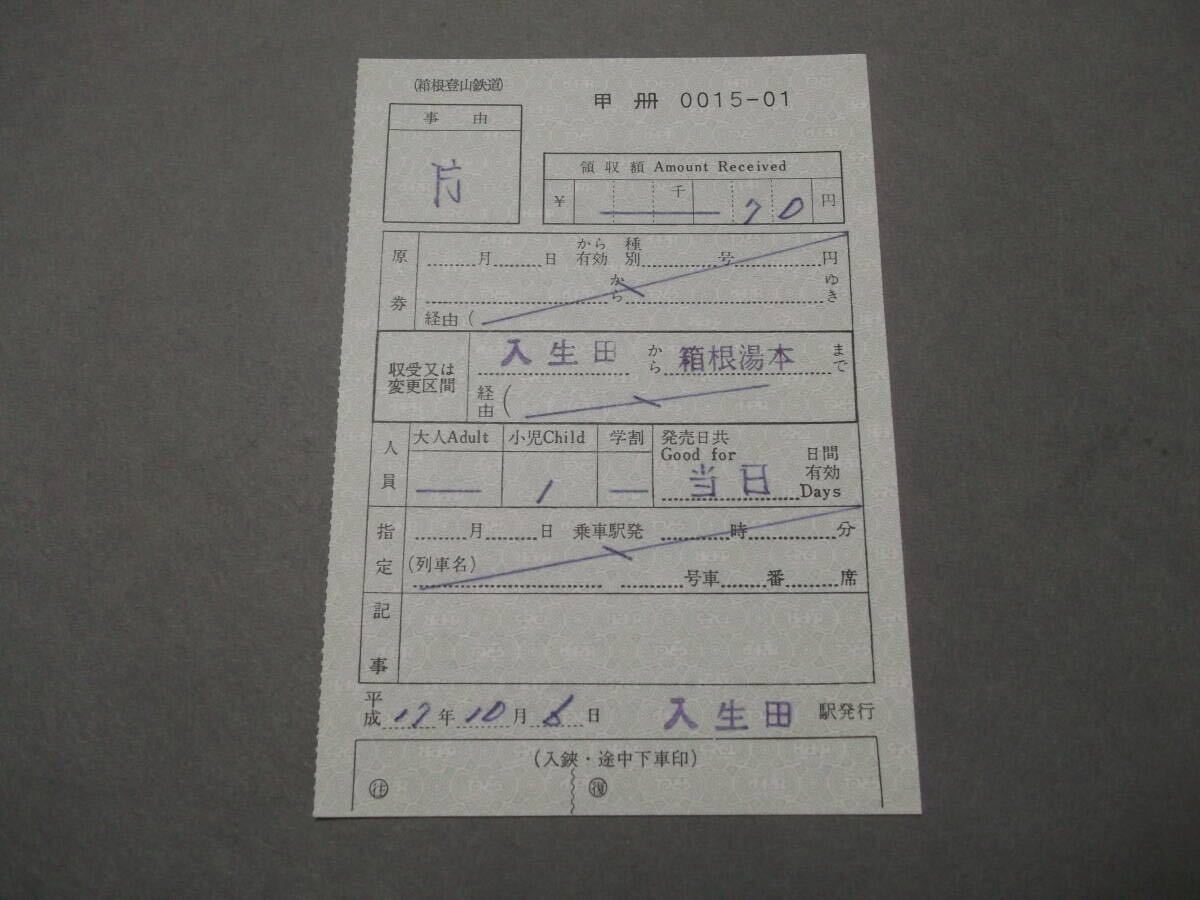 (箱根登山鉄道)
甲 册 0015-01
事 由
片
領 収 額 Amount Received
¥ 千 70 円
原券
月 日 から有効 種別 号 円
から ゆき
経由 (
収受又は変更区間
入生田 から 箱根湯本 まで
経由 (
人員
大人Adult 小児Child 学割
1
発売日共 Good for 当日 日間有効 Days
指定
月 日 乗車駅発 時 分
(列車名) 号車 番 席
記事
平成 17年 10月 日 入生田 駅発行
(入鋏・途中下車印)
往 復